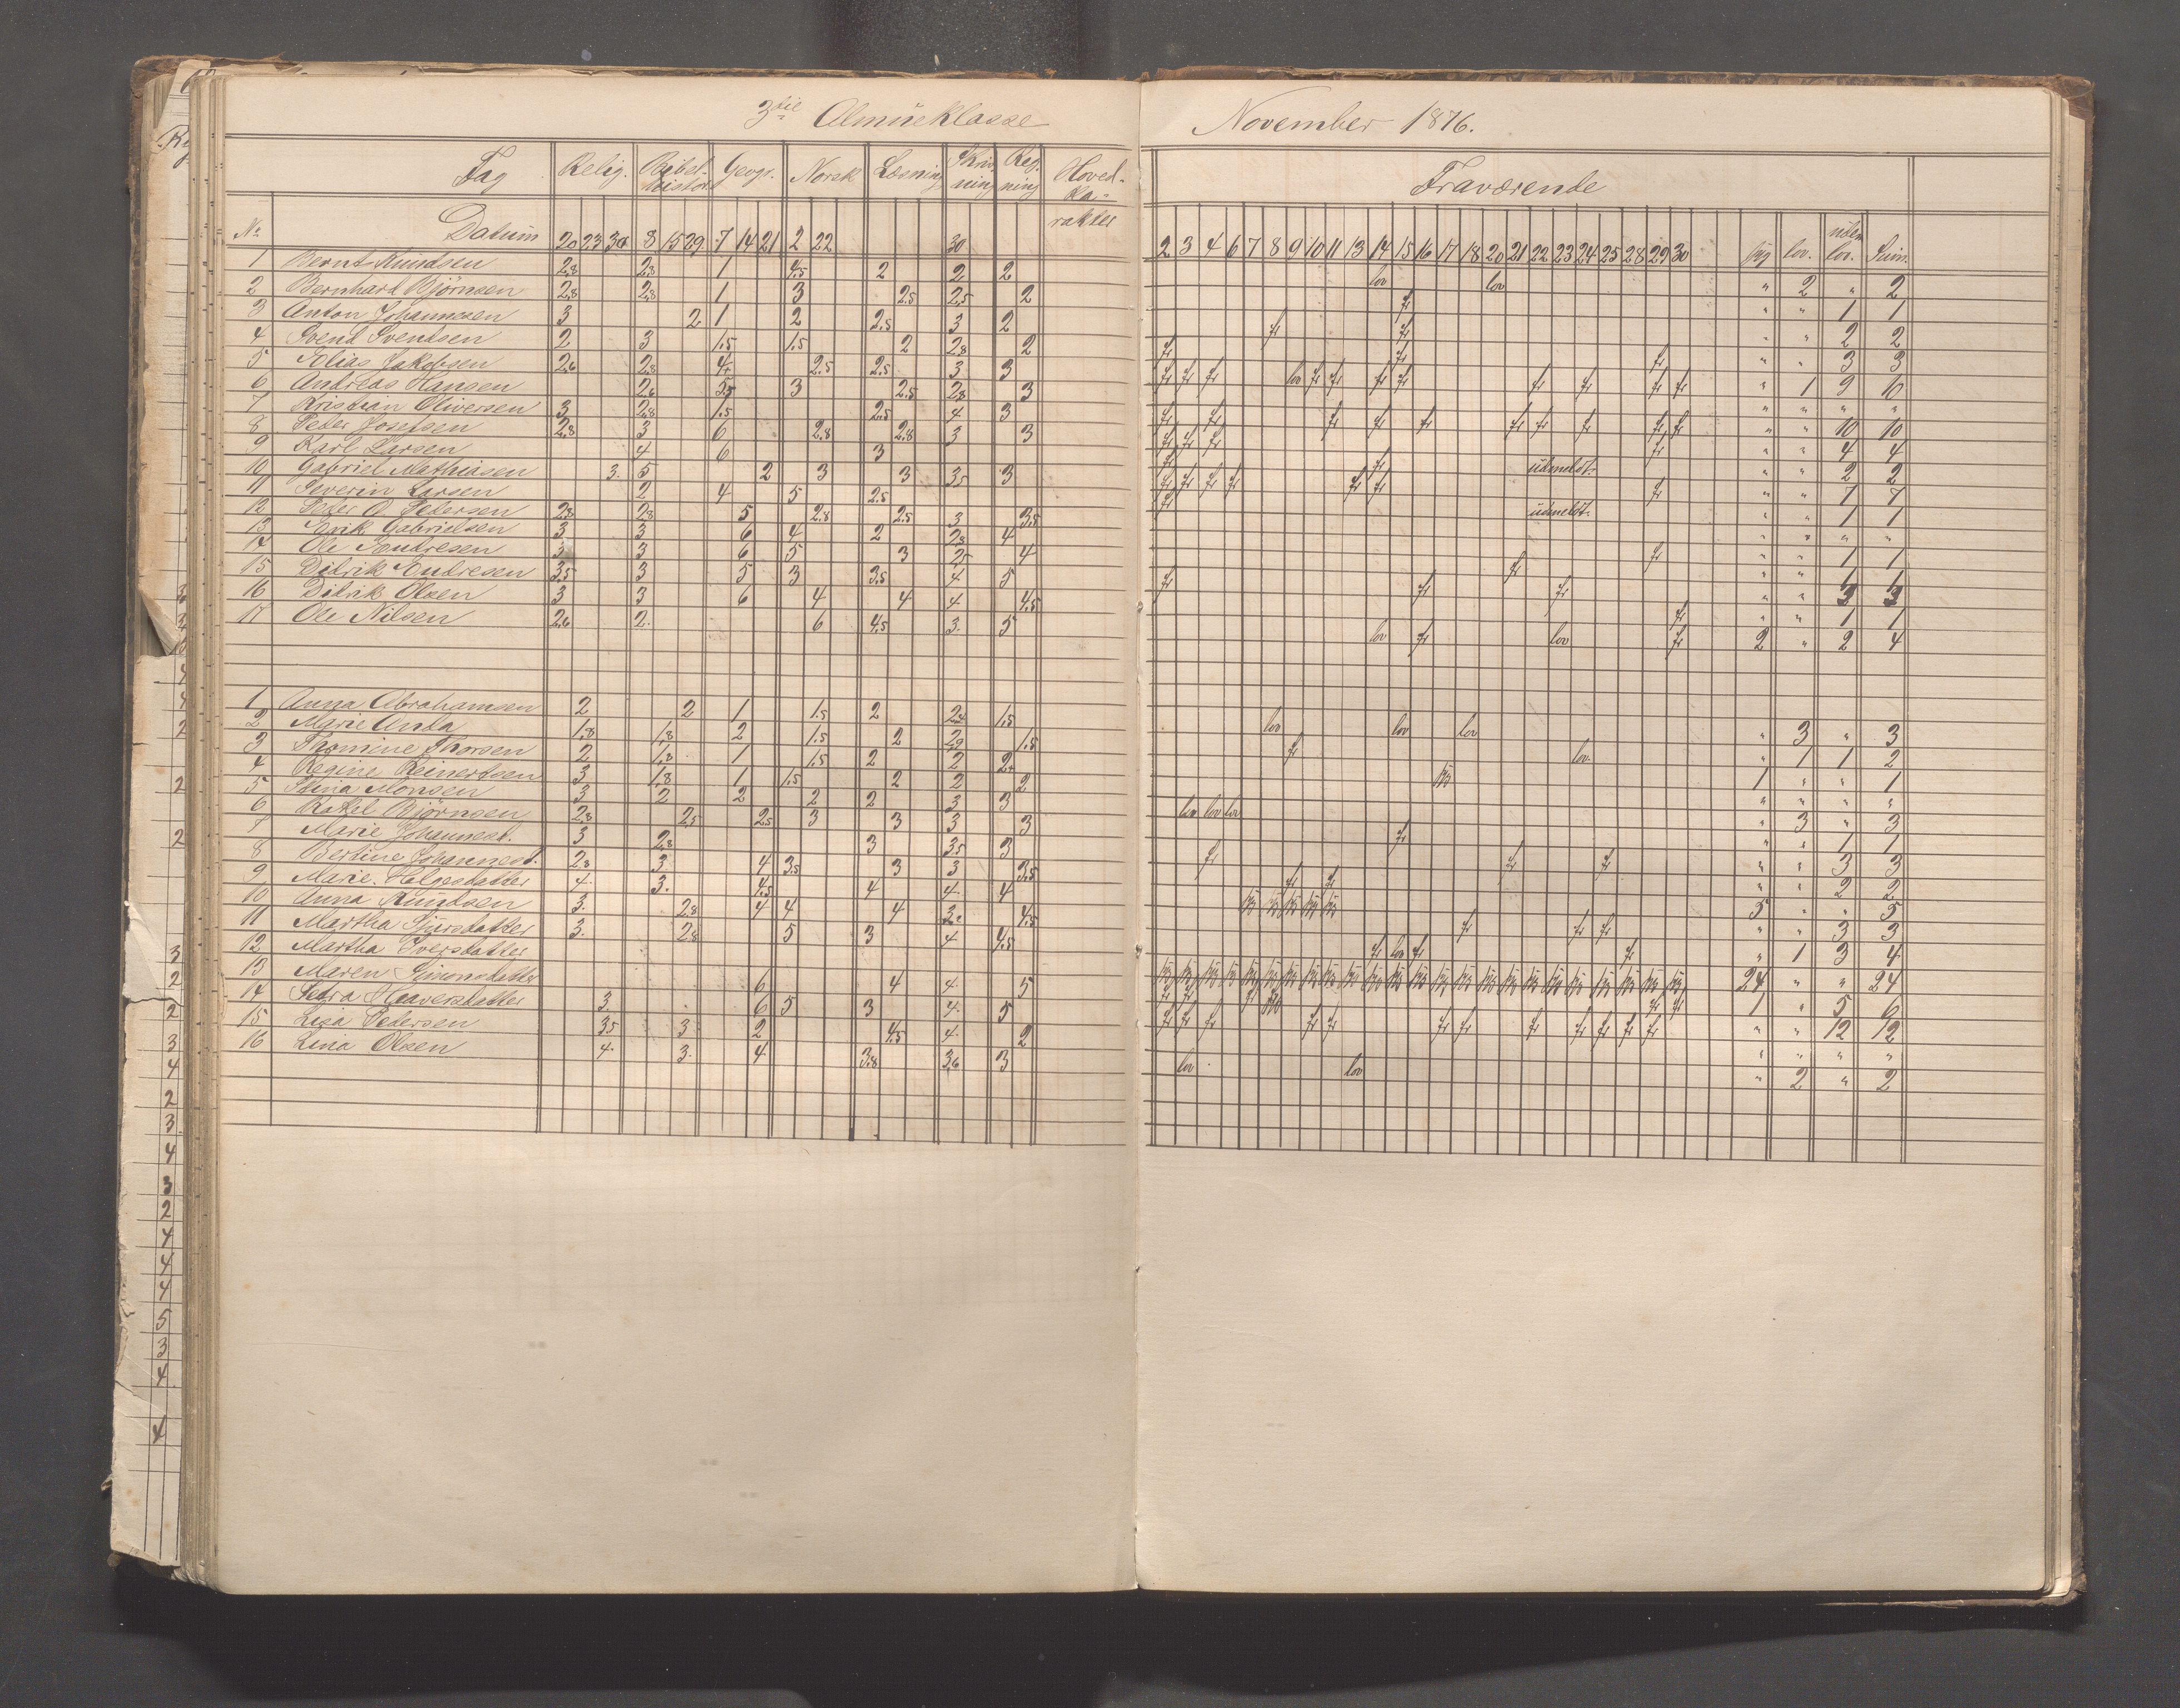 3die Almueklasse
November 1876.
Fag Relig. Bibel-histor. Geogr. Norsk Læsning Skrivning Regning Hoved-karakter
Fraværende
No Datum 20 23 30 8 15 29 7 14 21 2 22 30
2 3 4 6 7 8 9 10 11 13 14 15 16 17 18 20 21 22 23 24 25 28 29 30 syg lov. uden lov. Sum.
1 Bernt Knudsen 2,8 2,8 1 4,5 2 2 2 lov lov " 2 " 2
2 Bernhard Björnsen 2,8 2,8 1 3 2,5 2,5 2 fr " " 1 1
3 Anton Johannesen 3 2 1 2 2,5 3 2 fr fr " " 2 2
4 Svend Svendsen 2 3 1,5 1,5 2 2,8 2 fr fr fr " " 3 3
5 Elias Jakobsen 2,6 2,8 4 2,5 2,5 3 3 fr fr fr lov fr fr fr fr fr fr fr fr " 1 9 10
6 Andreas Hansen 2,6 5,5 3 2,5 2,8 3 " " " "
7 Kristian Oliversen 3 2,8 1,5 2,5 4 3 fr fr fr fr fr fr fr fr fr fr " " 10 10
8 Peder Josefsen 2,8 3 6 2,8 2,8 3 3 fr fr fr fr " " 4 4
9 Karl Larsen 4 6 3 fr fr udmeldt. " " 2 2
10 Gabriel Mathiasen 3. 5 2 3 3 3,5 3 fr fr fr fr fr fr fr " " 7 7
11 Severin Larsen 2 4 5 2,5 fr udmeldt. " " 1 1
12 Peder O Pedersen 2,8 2,8 5 2,8 2,5 3 3,5 " " " "
13 Erik Gabrielsen 3 3 6 4 2 2,8 4 fr " " 1 1
14 Ole Endresen 3 3 6 5 3 2,5 4 fr " " 1 1
15 Didrik Endresen 3,5 3 5 3 3,5 4 5 fr fr fr " " 3 3
16 Didrik Olsen 3 3 6 4 4 4 4,5 fr " " 1 1
17 Ole Nilsen 2,6 2. 6 4,5 3. 5 lov fr lov fr 2 " 2 4
1 Anna Abrahamsen 2 2 1 1,5 2 2,4 1,5 lov lov lov " 3 " 3
2 Marie Anda 1,8 1,8 2 1,5 2 2,9 1,5 fr lov. " 1 1 2
3 Thomine Thorsen 2 1,8 1 1,5 2 2 2+ syg 1 " " 1
4 Regine Reinertsen 3 1,8 1 1,5 2 2 2 " " " "
5 Stina Monsen 3 2 2 2 2 3 3 lov lov lov " 3 " 3
6 Rakel Björnsen 2,8 2,5 2,5 3 3 3 3 fr " " 1 1
7 Marie Johannesd. 3 2,8 3 3,5 3 fr fr fr " " 3 3
8 Bertine Johannesd. 2,8 3 4 3,5 3 3 3,5 fr fr " " 2 2
9 Marie Helgesdatter 4. 3. 4,5 4 4. 4 syg syg syg syg syg 5 " " 5
10 Anna Knudsen 3. 2,8 4 4 4 3,2 4,5 fr fr fr " " 3 3
11 Martha Sjursdatter 3. 2,8 5 3 4 4,5 fr lov fr fr " 1 3 4
12 Martha Iversdatter syg syg syg syg syg syg syg syg syg syg syg syg syg syg syg syg syg syg syg syg syg syg syg syg 24 " " 24
13 Maren Simonsdatter 6 4 4. 5 fr fr fr syg fr fr 1 " 5 6
14 Petra Havorsdatter 3. 6 5 3 4. 5 fr fr fr fr fr fr fr fr fr fr fr fr " " 12 12
15 Lisa Pedersen 3,5 3 2 4,5 4. 2 " " " "
16 Lina Olsen 4. 3. 4. 3,8 3,6 3 lov lov " 2 " 2